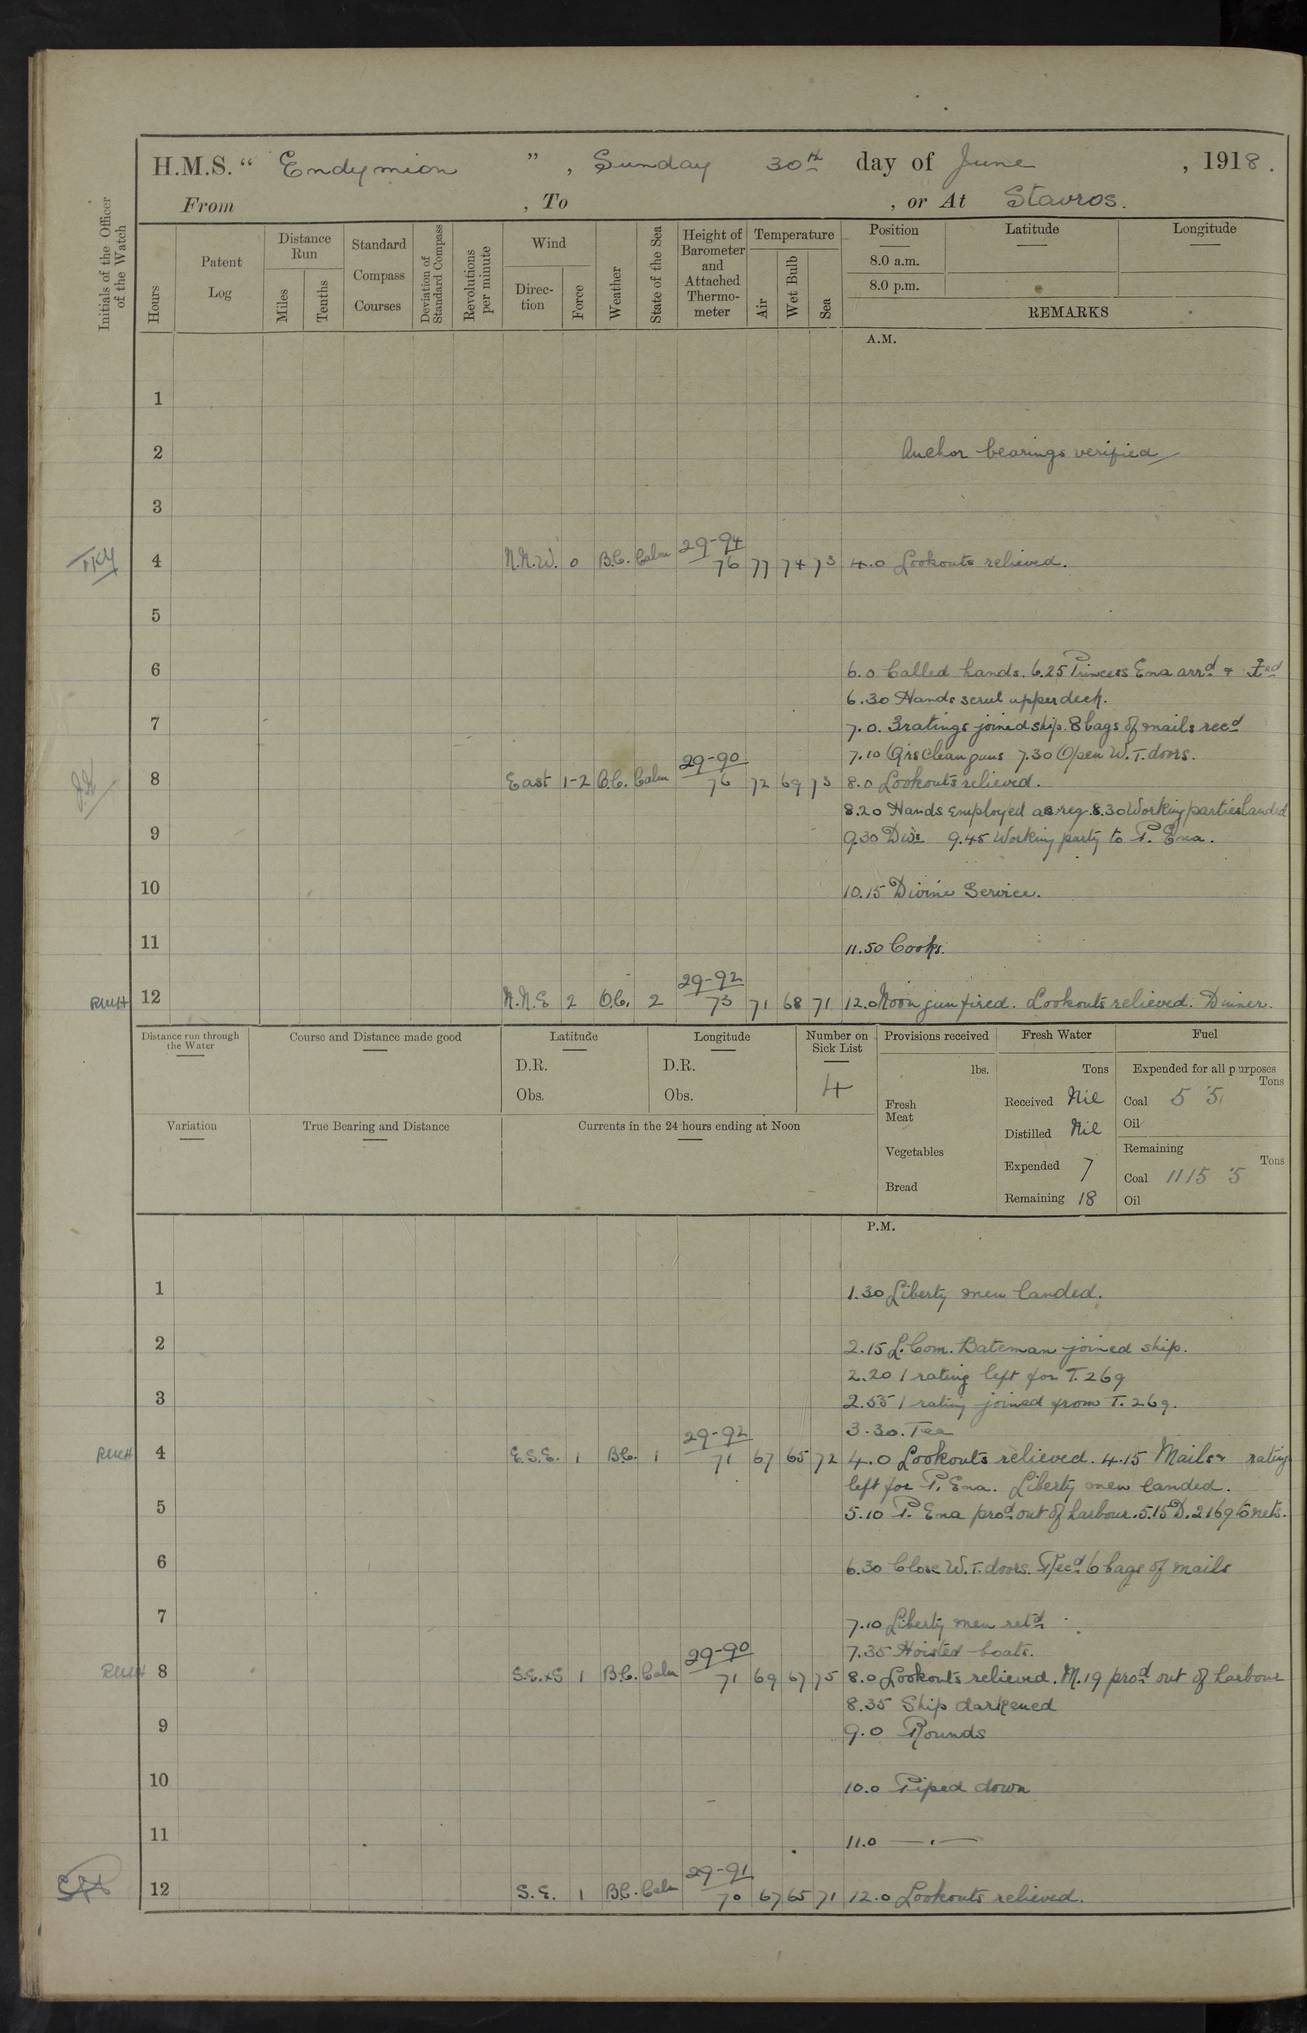 H.M.S. " Endymion ", Sunday 30th day of June, 1918.
From , To , or At Stavros.
Initials of the Officer of the Watch
Hours
Patent Log
Distance Run
Miles
Tenths
Standard Compass Courses
Deviation of Standard Compass
Revolutions per minute
Wind
Direction
Force
Weather
State of the Sea
Height of Barometer and Attached Thermometer
Temperature
Air
Wet Bulb
Sea
Position
8.0 a.m.
8.0 p.m.
Latitude
Longitude
REMARKS
A.M.
1
2 Anchor bearings verified
3
4 N.N.W. 0 B.C. Calm 29-94 76 77 74 73 4.0 Lookouts relieved.
5
6 6.0 Called hands. 6.25 Princess Ena arrd &
6.30 Hands scrub upper deck.
7 7.0. 3 ratings joined ship. 8 bags of mails recd
7.10 Qrs clean guns 7.30 Open W.T. doors.
8 East 1-2 B.C. Calm 29-90 76 72 69 73 8.0 Lookouts relieved.
8.20 Hands employed as reg. 8.30 Working parties landed
9 9.30 Divs 9.45 Working party to P. Ena.
10 10.15 Divine Service.
11 11.50 Cooks.
RWH 12 N.N.E 2 O.C. 2 29-92 73 71 68 71 12.0 Noon gun fired. Lookouts relieved. Dinner.
Distance run through the Water
Course and Distance made good
Latitude
D.R.
Obs.
Longitude
D.R.
Obs.
Number on Sick List
4
Provisions received
lbs.
Fresh Meat
Vegetables
Bread
Fresh Water
Tons
Received Nil
Distilled Nil
Expended 7
Remaining 18
Fuel
Expended for all purposes
Tons
Coal 5 5
Oil
Remaining
Tons
Coal 1115 5
Oil
Variation
True Bearing and Distance
Currents in the 24 hours ending at Noon
P.M.
1 1.30 Liberty men landed.
2 2.15 L. Com. Bateman joined ship.
2.20 1 rating left for T. 269
3 2.55 1 rating joined from T. 269.
3.30. Tea
RWH 4 E.S.E. 1 B.C. 1 29-92 71 67 65 72 4.0 Lookouts relieved. 4.15 Mails & rating
left for P. Ena. Liberty men landed.
5 5.10 P. Ena prod out of harbour. 5.15 D. 2169 to nets.
6 6.30 Close W.T. doors. Recd 6 bags of mails
7 7.10 Liberty men retd
7.35 Hoisted boats.
RWH 8 S.E.xS 1 B.C. Calm 29-90 71 69 67 75 8.0 Lookouts relieved. M.19 prod out of harbour
8.35 Ship darkened
9 9.0 Rounds
10 10.0 Piped down
11 11.0 — . —
12 S.E. 1 B.C. Calm 29-91 70 67 65 71 12.0 Lookouts relieved.